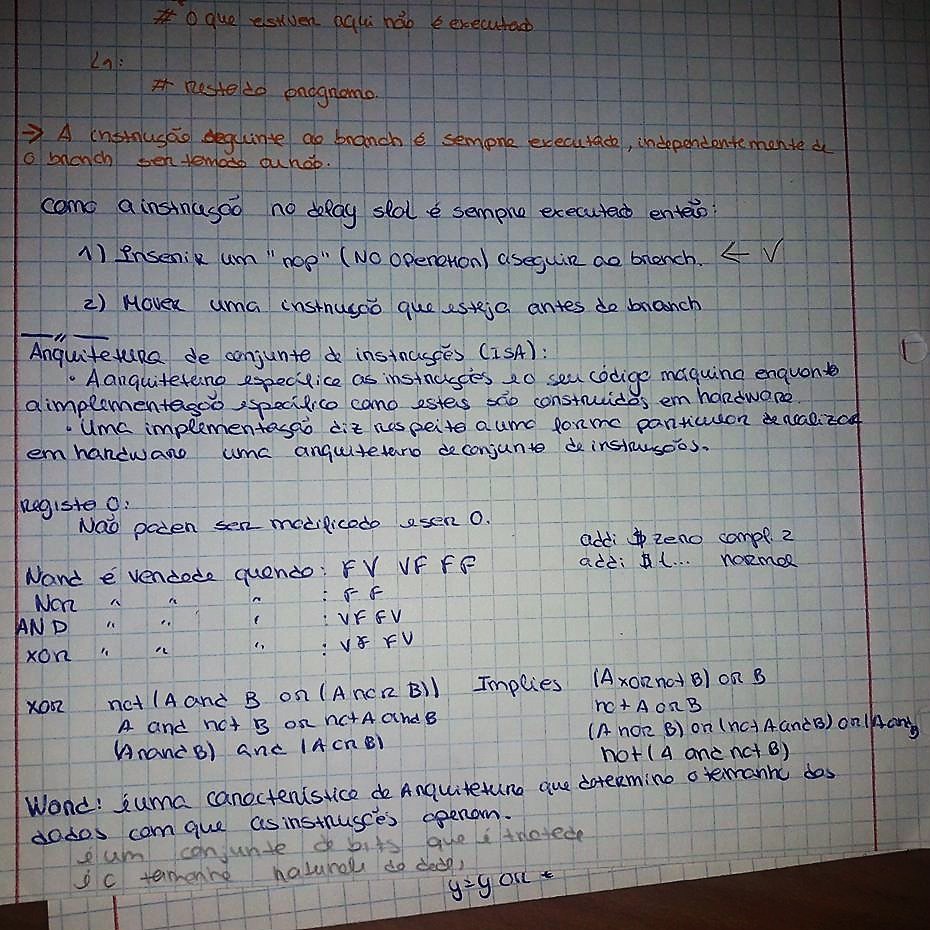 # O que estiver aqui não é executado
L1:
# Resto do programa.
→ A instrução seguinte ao branch é sempre executado, independentemente de
o branch ser tomado ou não.
como a instrução no delay slot é sempre executado então:
1) Inserir um "nop" (NO operation) a seguir ao branch. ← √
2) Mover uma instrução que esteja antes do branch
Arquitetura de conjunto de instruções (ISA):
• A arquitetura especifica as instruções e o seu código máquina enquanto
a implementação especifica como estas são construídas em hardware.
• Uma implementação diz respeito a uma forma particular de realizar
em hardware uma arquitetura de conjunto de instruções.
Registo 0:
Não poden ser modificado e ser 0.
addi $zero compl. 2
addi $t... normal
Nand é verdade quando: F V V F F F
Nor " " " : F F
AND " " " : V F F V
xor " " " : V F F V
xor not (A and B or (A nor B)) Implies (A xor not B) or B
A and not B or not A and B not A or B
(A nand B) and (A or B) (A nor B) or (not A and B) or (A and B
not (A and not B)
Word: é uma característica de Arquitetura que determina o tamanho dos
dados com que as instruções operam.
é um conjunto de bits que é tratado
é o tamanho natural do dado,
y=y or